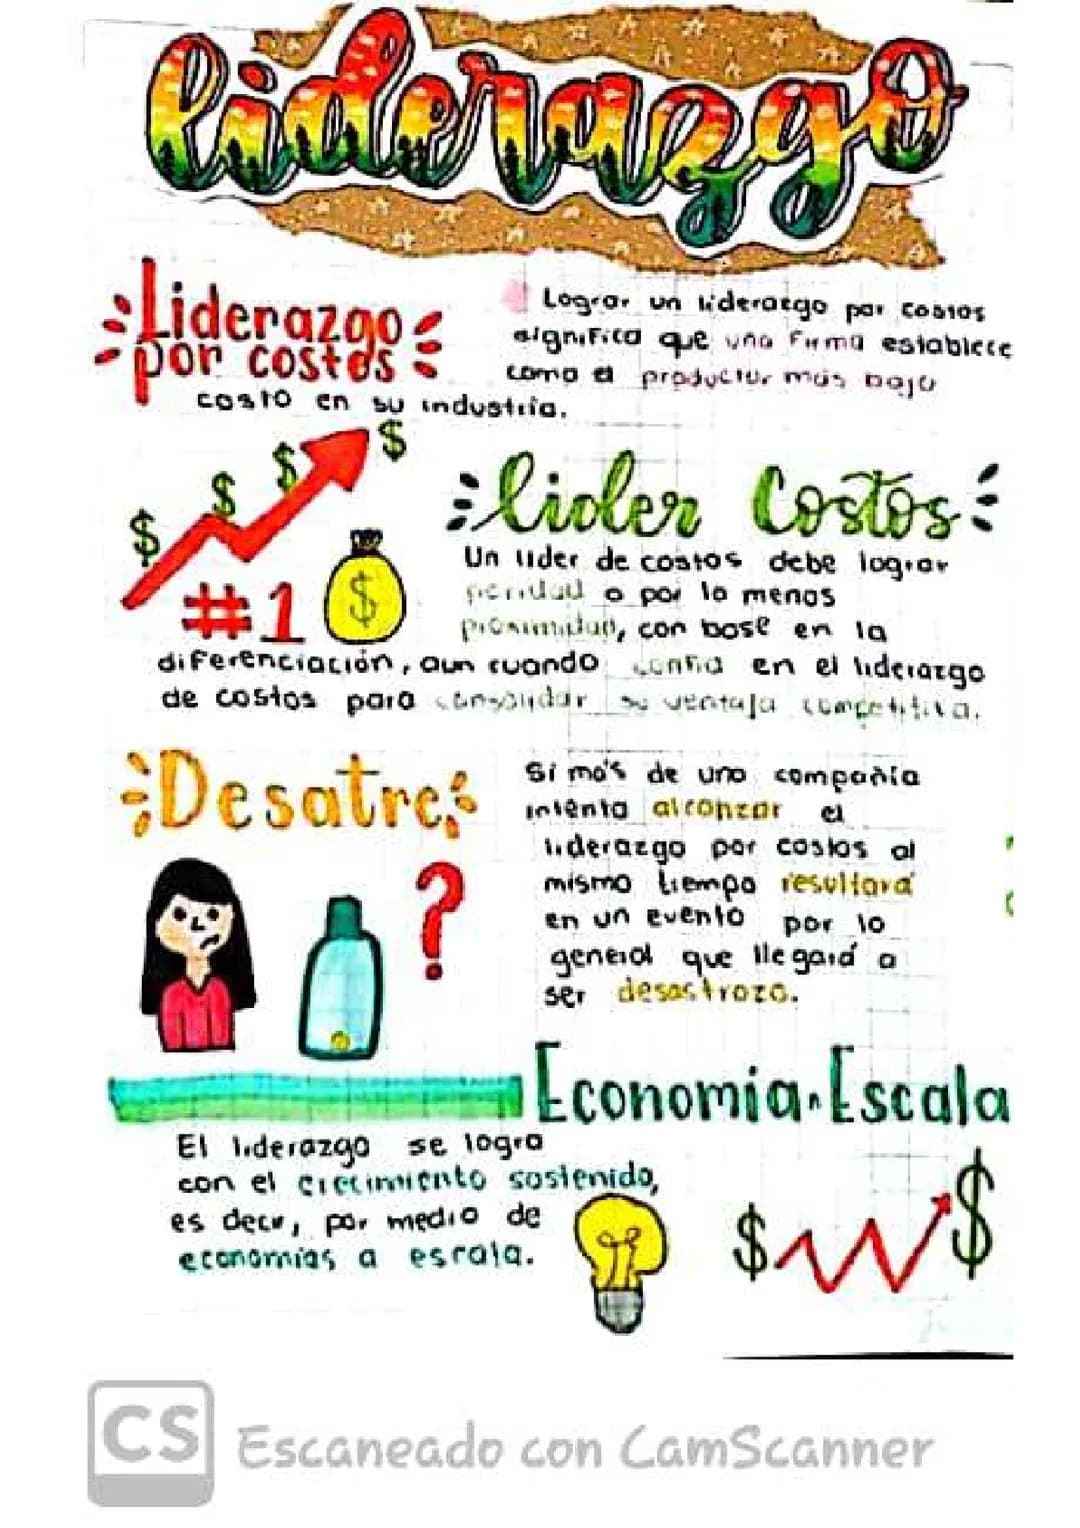 liderazgo
Liderazgo
por costos
Lograr un liderazgo por costos
significa que una firma establece
como el productor más bajo
costo en su industria.
$ $ $ $
#1
$
lider Costos
Un lider de costos debe lograr
paridad o por lo menos
proximidad, con base en la
diferenciación, aun cuando confia en el liderazgo
de costos para consolidar su ventaja competitiva.
Desatre
Si más de una compañia
intenta alcanzar el
liderazgo por costos al
mismo tiempo resultará
en un evento por lo
general que llegará a
ser desastrozo.
?
Economia Escala
El liderazgo se logra
con el crecimiento sostenido,
es decir, por medio de
economias a escala.
$ $
CS Escaneado con CamScanner